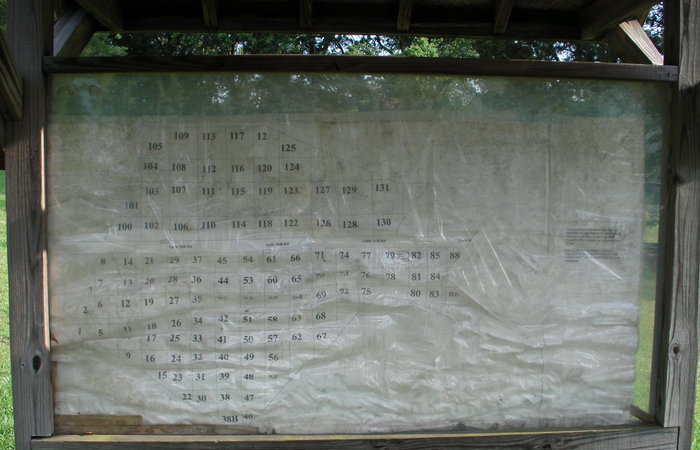 109 113 117 12
105 125
104 108 112 116 120 124
103 107 111 115 119 123 127 129 131
101
100 102 106 110 114 118 122 126 128 130
8 14 21 29 37 45 54 61 66 71 74 77 79 82 85 88
7 13 20 28 36 44 53 60 65 70 73 76 78 81 84
3 72 75 80 83 86
6 12 19 27 35 64 69
2
5 11 18 26 34 42 51 58 63 68
1
17 25 33 41 50 57 62 67
9 16 24 32 40 49 56
15 23 31 39 48
22 30 38 47
38B 46